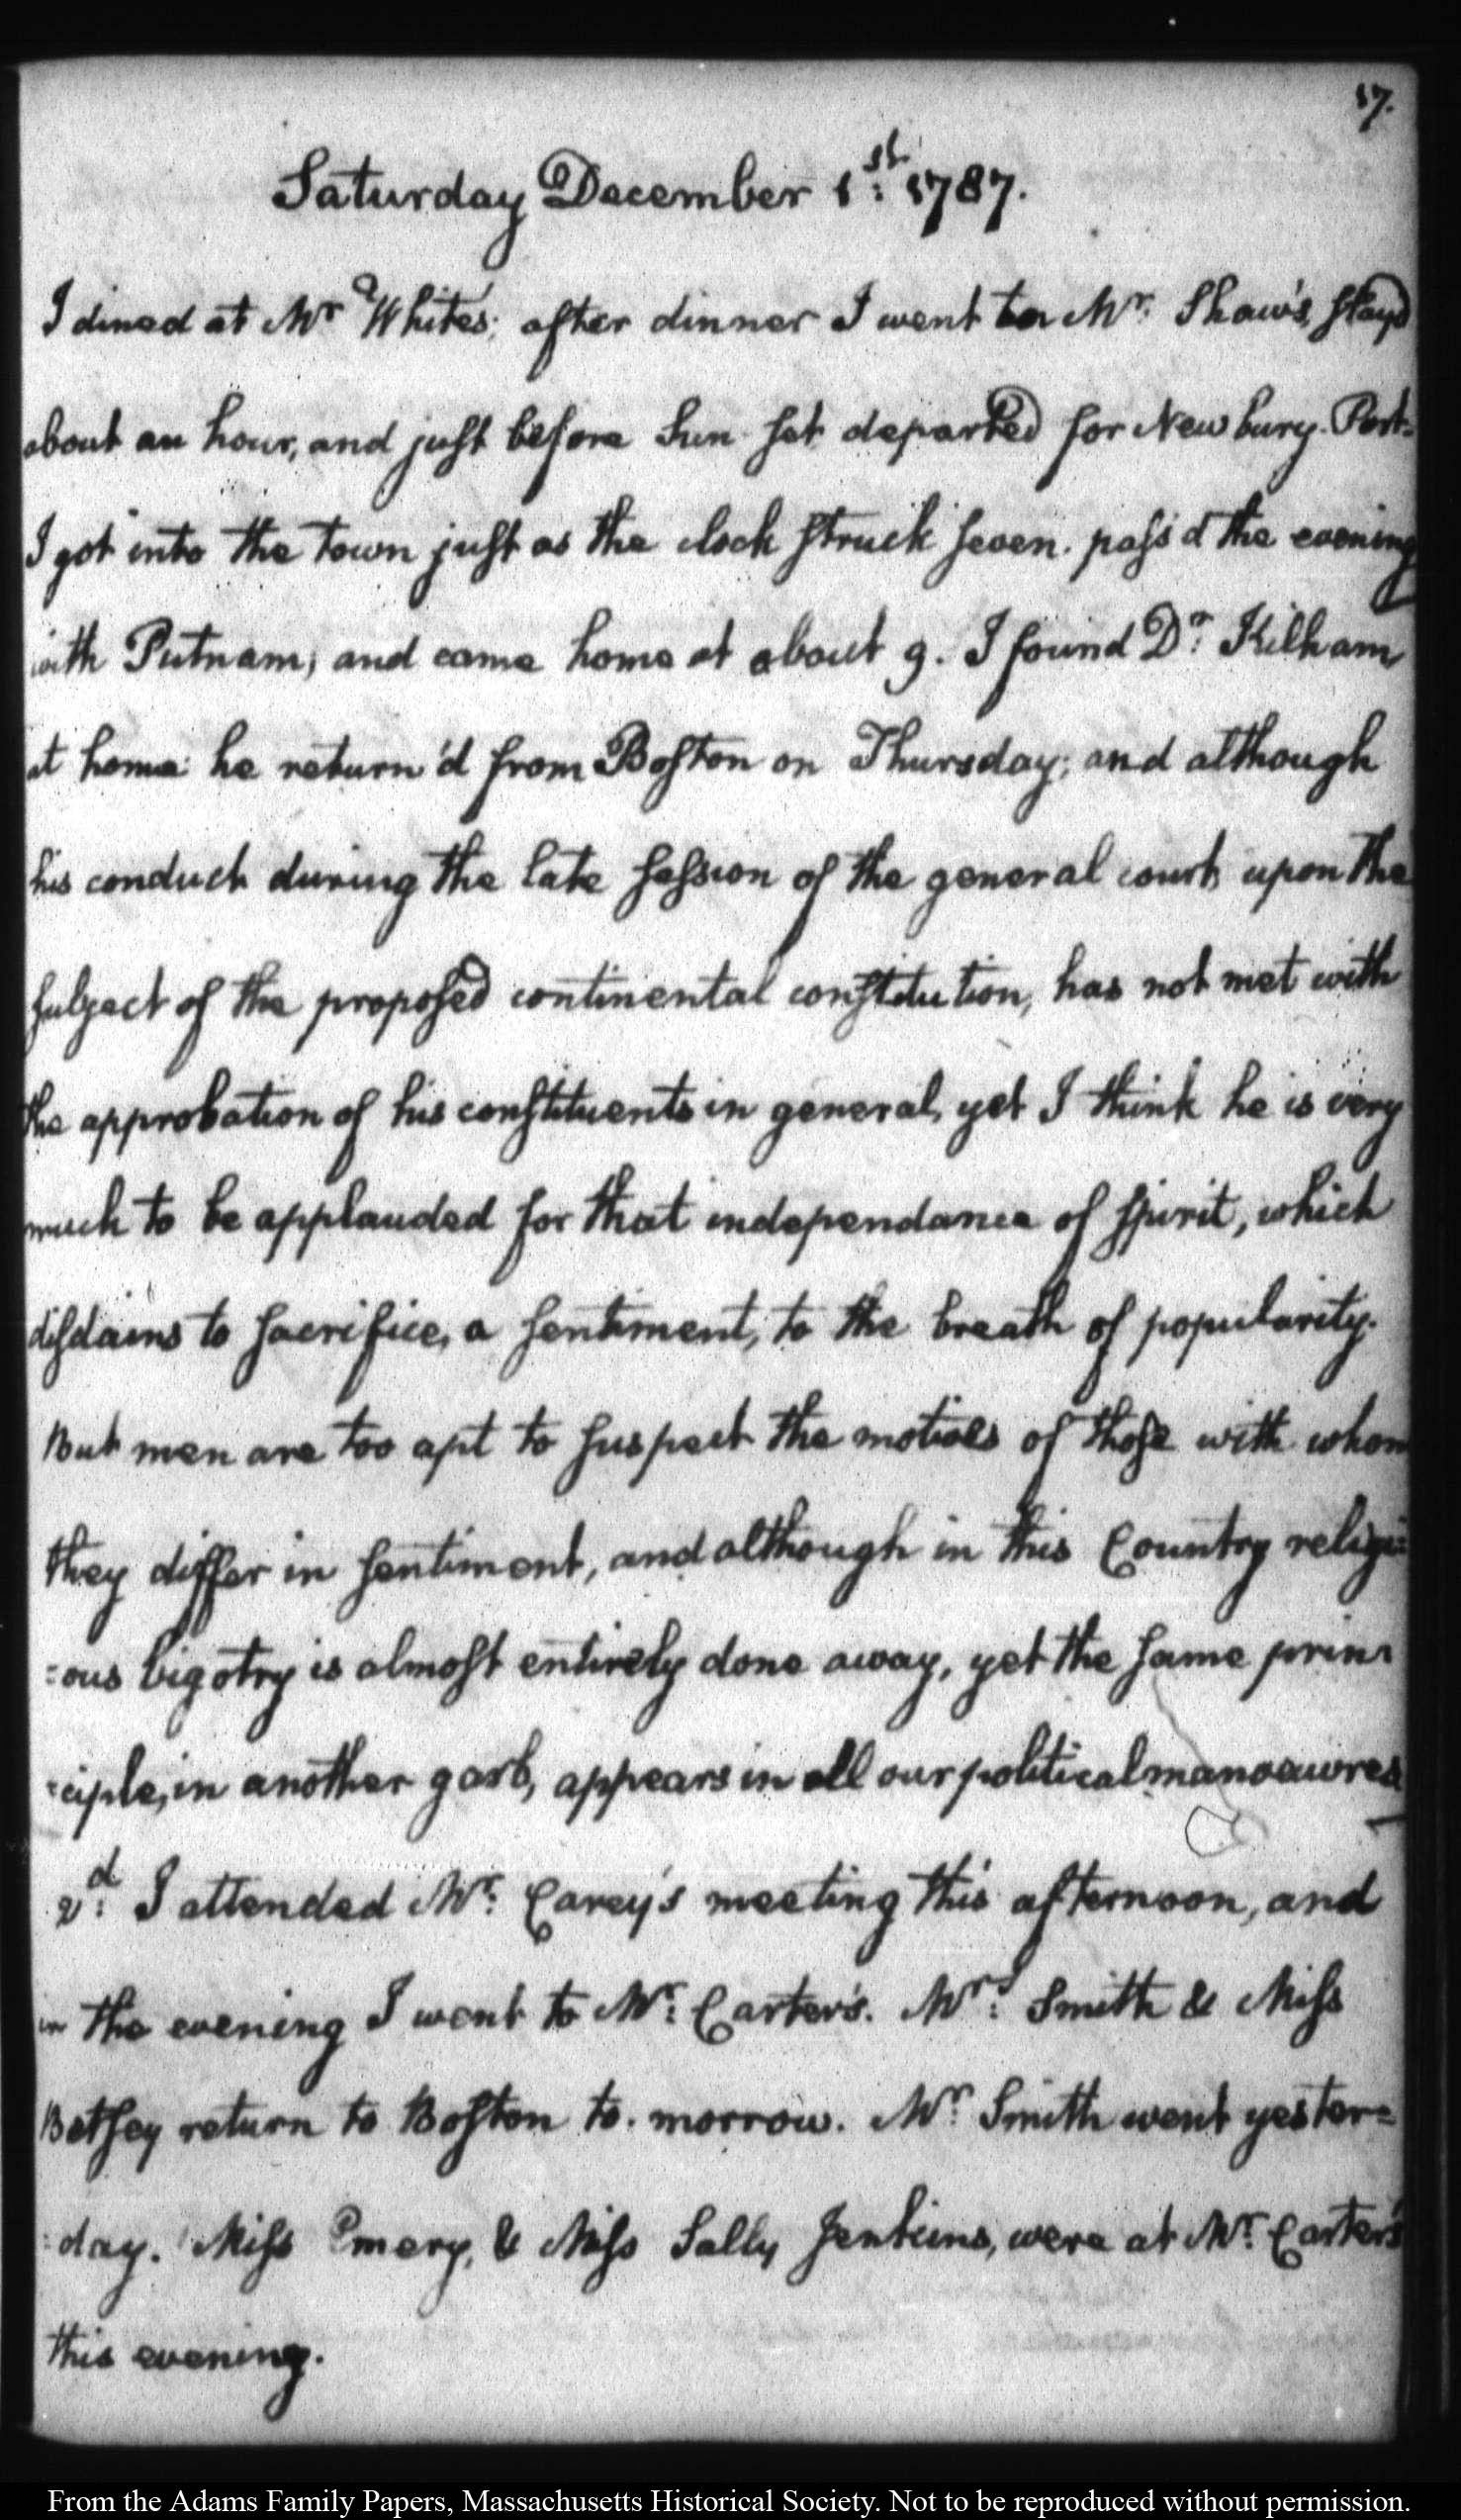 17.
Saturday December 1st: 1787.
I dined at Mr White's; after dinner I went to Mr: Shaw's, stay'd
about an hour, and just before Sun set departed for Newbury-Port.
I got into the town just as the clock struck seven. pass'd the evening
with Putnam; and came home at about 9. I found Dr: Kilham
at home: he return'd from Boston on Thursday; and although
his conduct during the late session of the general court upon the
subject of the proposed continental constitution, has not met with
the approbation of his constituents in general, yet I think he is very
much to be applauded for that independance of spirit, which
disdains to sacrifice, a sentiment, to the breath of popularity.
But men are too apt to suspect the motives of those with whom
they differ in sentiment, and although in this Country religi=
=ous bigotry is almost entirely done away, yet the same prin=
=ciple, in another garb, appears in all our political manoeuvres
2d: I attended Mr: Carey's meeting this afternoon, and
in the evening I went to Mr: Carter's. Mrs: Smith & Miss
Betsey return to Boston to-morrow. Mr: Smith went yester=
=day. Miss Emery, & Miss Sally Jenkins, were at Mr: Carter's
this evening.
From the Adams Family Papers, Massachusetts Historical Society. Not to be reproduced without permission.